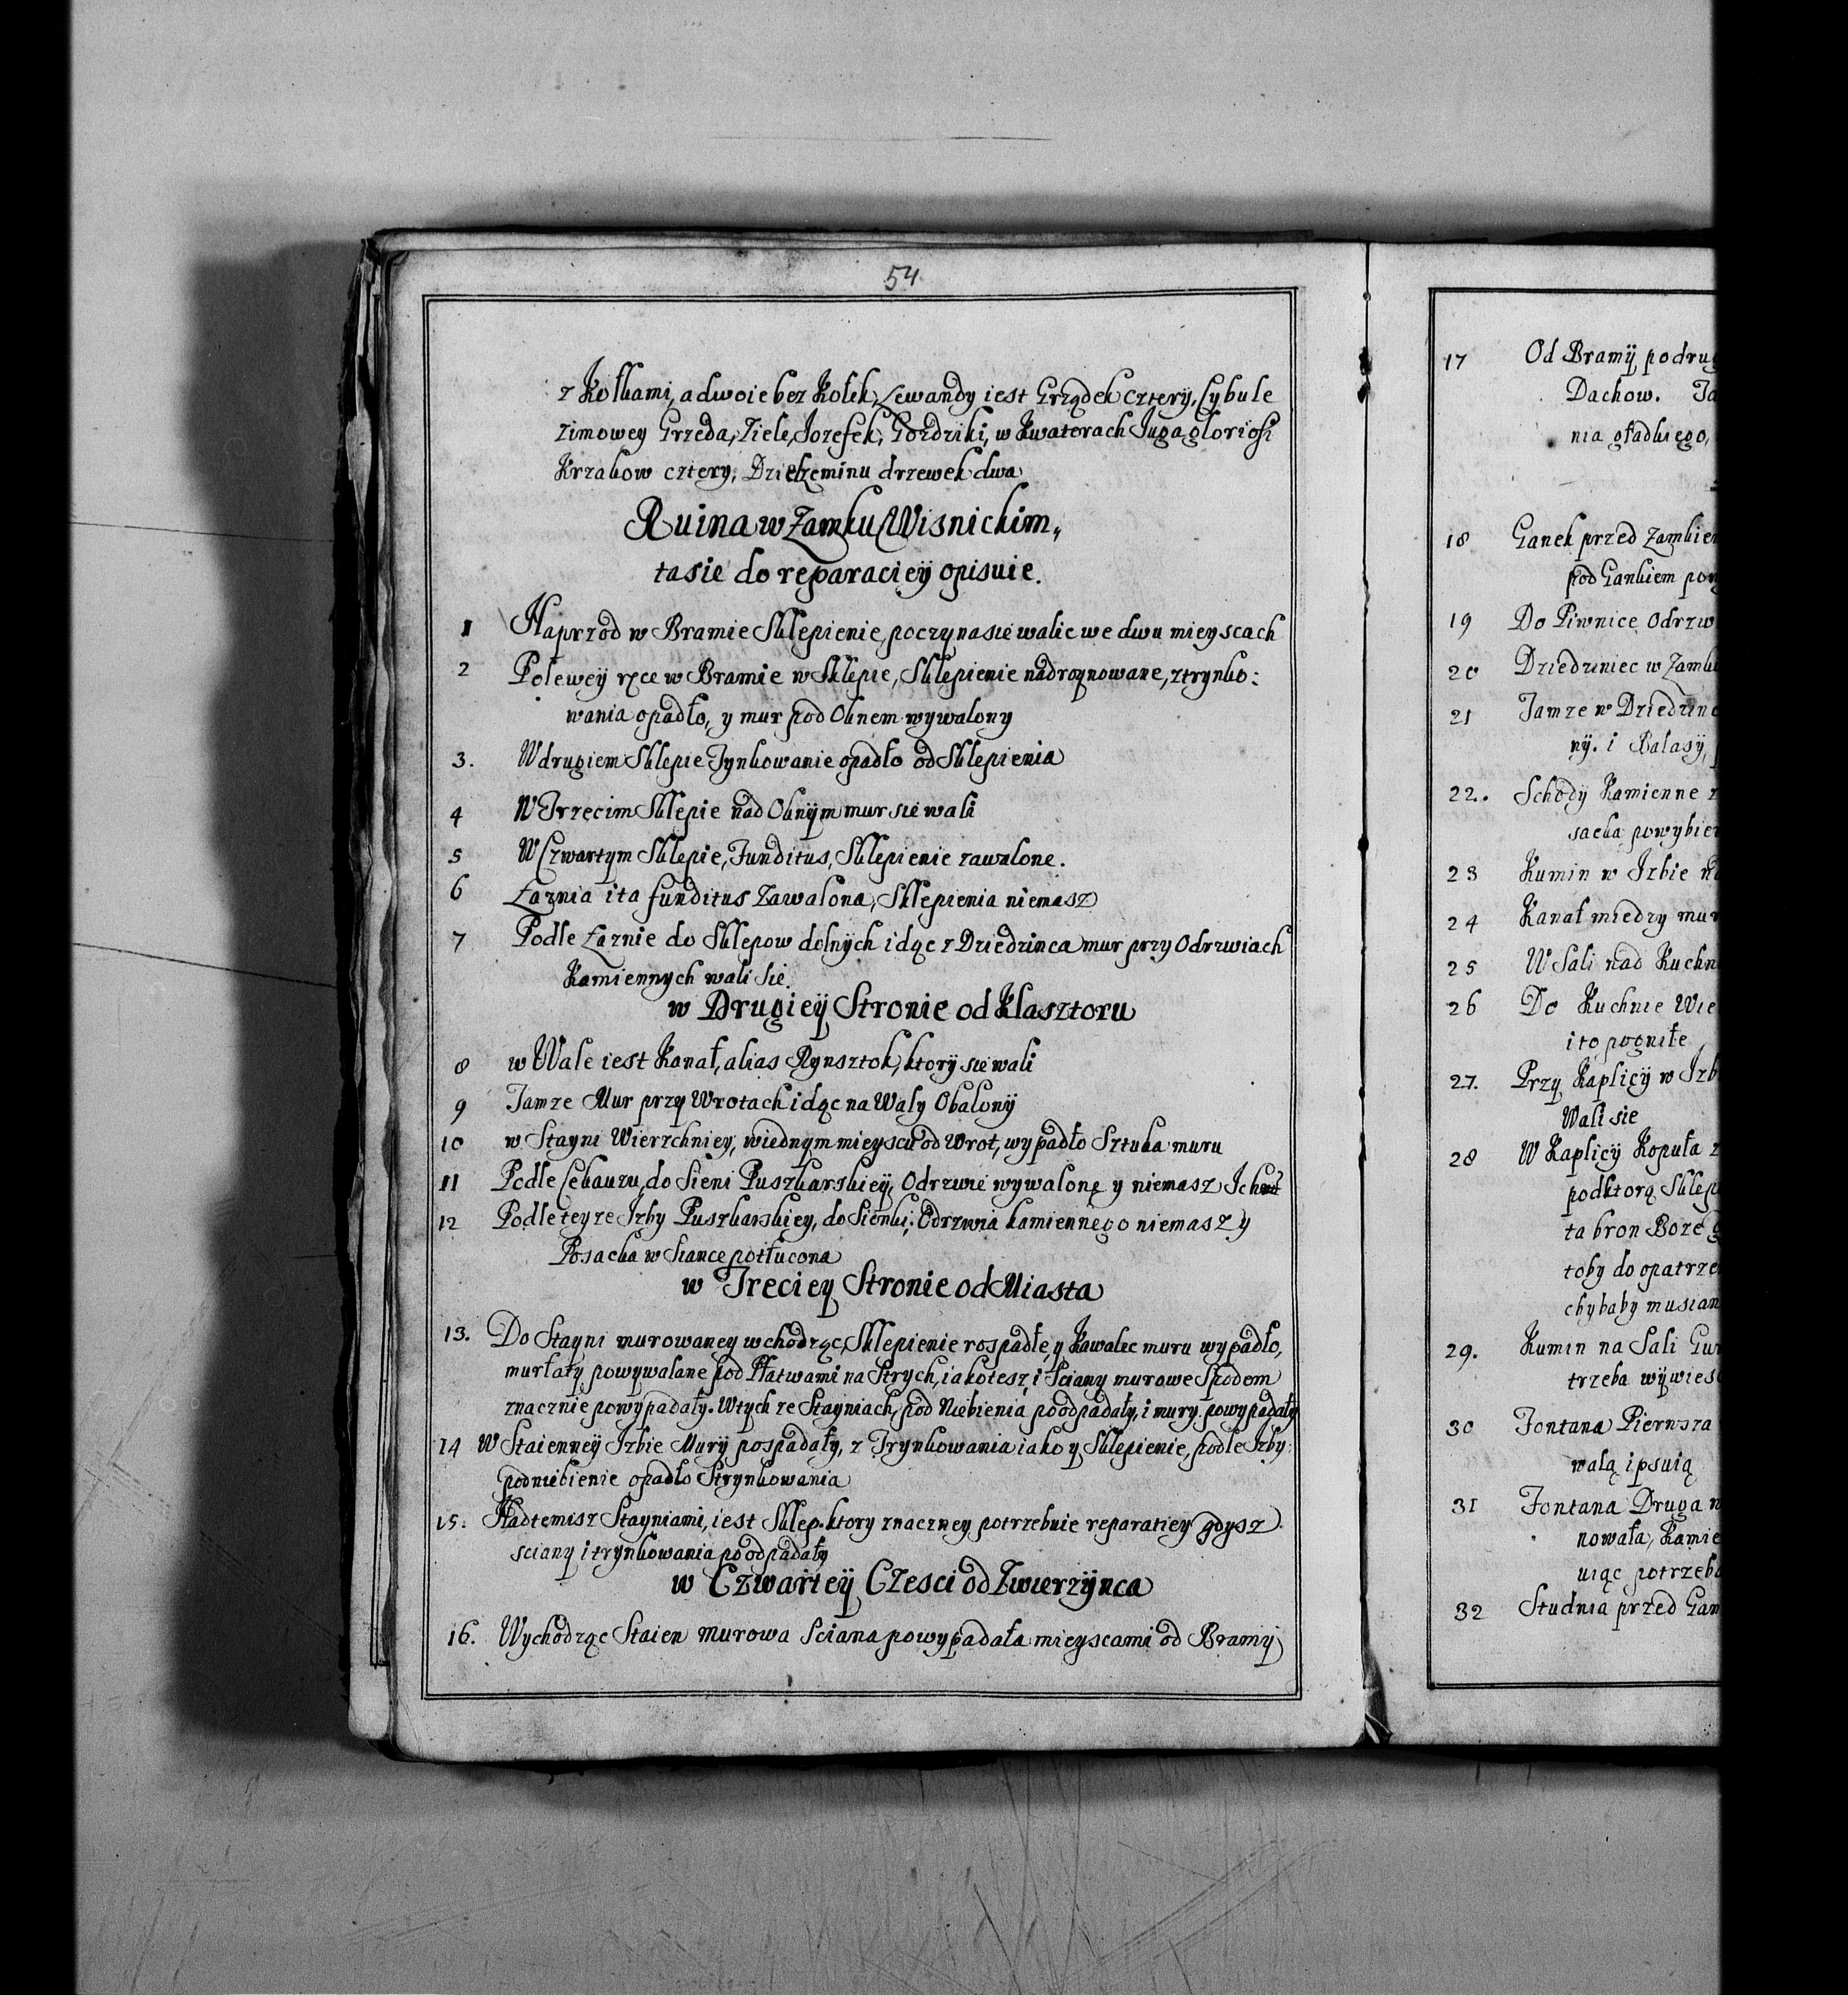 54
z Kołkami, a dwoie bez Kołek, Lewandy iest Grządek Cztery, Cybule
zimowey Grzeda, Ziele, Jozefek, Gozdziki, w Kwaterach Juga gloriosi
Krzakow cztery, drzewek dwa
Ruina w Zamku Wisnickim,
ta sie do reparacieÿ opisuie.
1 Naprzod w Bramie Sklepienie poczyna sie walic we dwu mieyscach
2 Po leweÿ ręce w Bramie w Sklepie, Sklepienie nadroynowane, z trynko:
wania opadło, y mur pod Oknem wywalony
3. W drugiem Sklepie Tynkowanie opadło od Sklepienia
4 W Trzecim Sklepie nad Oknÿm mur sie wali
5 W Czwartym Sklepie, Funditus, Sklepienie zawalone.
6 Łaznia i ta funditus Zawalona, Sklepienia niemasz
7 Podle Łaznie do Sklepow dolnÿch idąc z Dziedzinca mur przy Odrzwiach
Kamiennych wali sie.
w Drugieÿ Stronie od Klasztoru
8 w Wale iest Kanał, alias Rynsztok, ktorÿ sie wali
9 Tamze Mur przy Wrotach idąc na Wały Obalonÿ
10 w Stayni Wierzchniey, w iednym mieyscu od Wrot, wypadło Sztuka muru
11 Podle Cekauzu, do Sieni Puszkarskieÿ, Odrzwie wywalone y niemasz Ich
12 Podle teyze Izby Puszkarskiey, do Sionki, Odrzwia kamiennego niemasz y
Posacka w Siance potłucona
w Treciey Stronie od Miasta
13. Do Stayni murowaney wchodząc, Sklepienie rospadłe, y Kawalec muru wypadło,
murłaty powywalane pod Płatwami na Strych, iako tesz i Sciany murowe Spodem
znacznie powypadały. W tych ze Stayniach, pod Niebienia poodpadały, i mury powypadały
14 W Staienneÿ Izbie Murÿ pospadały, z Trynkowania iako y Sklepienie, podle Izby
podniebienie opadło Strynkowania
15. Nad temisz Stayniami, iest Sklep. ktory znaczney potrzebuie reparatiey gdysz
sciany i trynkowania poodpadały
w Czwarteÿ Czesci od Zwierzÿnca
16. Wychodząc Staien murowa Sciana powypadała mieyscami od Bramÿ
17 Od Bramÿ po
Dachow.
nia gładkiego,
18 Ganek przed
pod Gankiem
19 Do Piwnice
20 Dziedziniec w
21 Tamze w
nÿ. i Balasÿ,
22. Schodÿ Kamienne
sacka
23 Kumin w Izbie
24 Kanał miedzy
25 W Sali nad
26 Do Kuchnie
i to pogniłe
27. Przy Kaplicÿ w
Wali sie
28 W Kaplicÿ Kopuła
pod ktorą
ta bron Boze
toby do
chybaby
29. Kumin na Sali
trzeba
30 Fontana Pierwsza
walą i psuią
31 Fontana Druga
nowała,
uiąc
32 Studnia przed